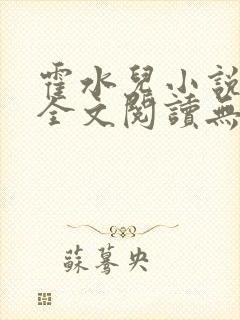 霍水兒小說
全文閱讀無
蘇驀央